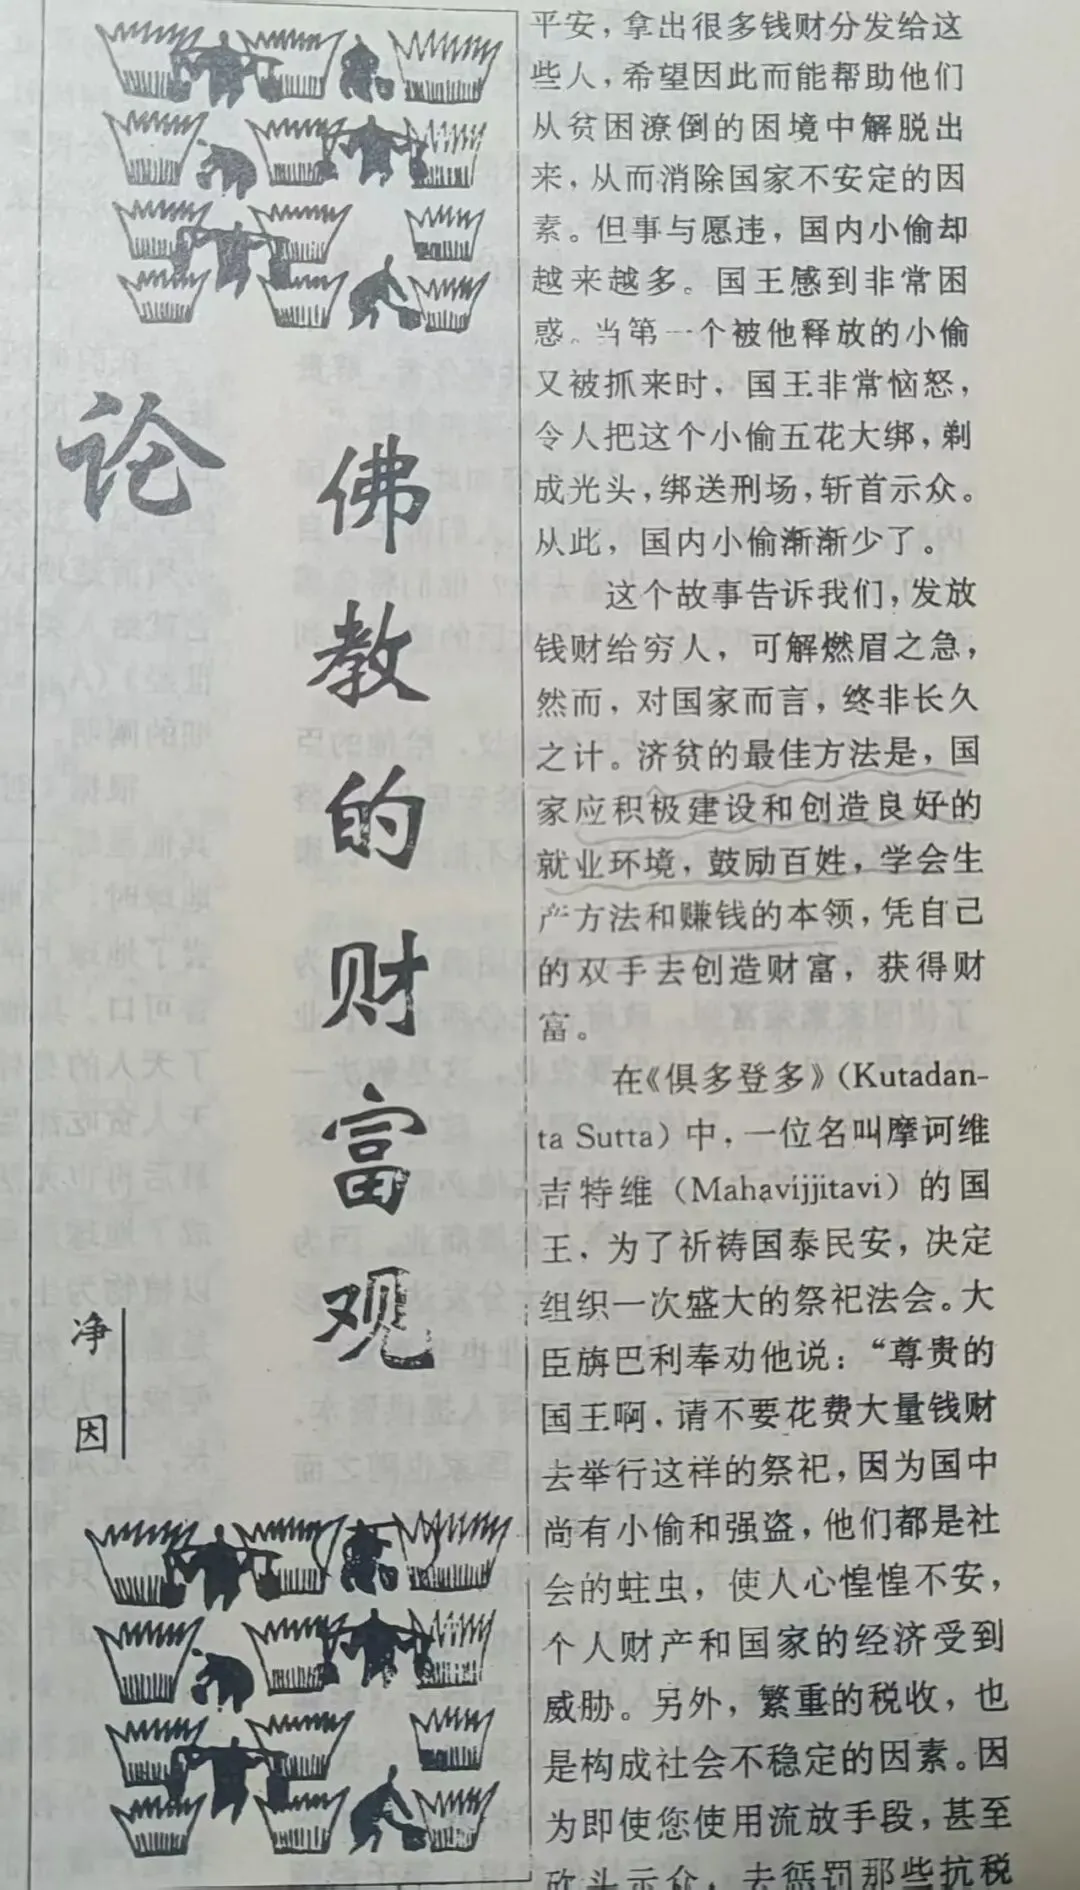 论
佛教的财富观
净因
平安，拿出很多钱财分发给这
些人，希望因此而能帮助他们
从贫困潦倒的困境中解脱出
来，从而消除国家不安定的因
素。但事与愿违，国内小偷却
越来越多。国王感到非常困
惑。当第一个被他释放的小偷
又被抓来时，国王非常恼怒，
令人把这个小偷五花大绑，剃
成光头，绑送刑场，斩首示众。
从此，国内小偷渐渐少了。
这个故事告诉我们，发放
钱财给穷人，可解燃眉之急，
然而，对国家而言，终非长久
之计。济贫的最佳方法是，国
家应积极建设和创造良好的
就业环境，鼓励百姓，学会生
产方法和赚钱的本领，凭自己
的双手去创造财富，获得财
富。
在《俱多登多》(Kutadan-
ta Sutta）中，一位名叫摩诃维
吉特维（Mahavijjitavi）的国
王，为了祈祷国泰民安，决定
组织一次盛大的祭祀法会。大
臣旃巴利奉劝他说：“尊贵的
国王啊，请不要花费大量钱财
去举行这样的祭祀，因为国中
尚有小偷和强盗，他们都是社
会的蛀虫，使人心惶惶不安，
个人财产和国家的经济受到
威胁。另外，繁重的税收，也
是构成社会不稳定的因素。因
为即使您使用流放手段，甚至
砍头示众，去惩罚那些抗税